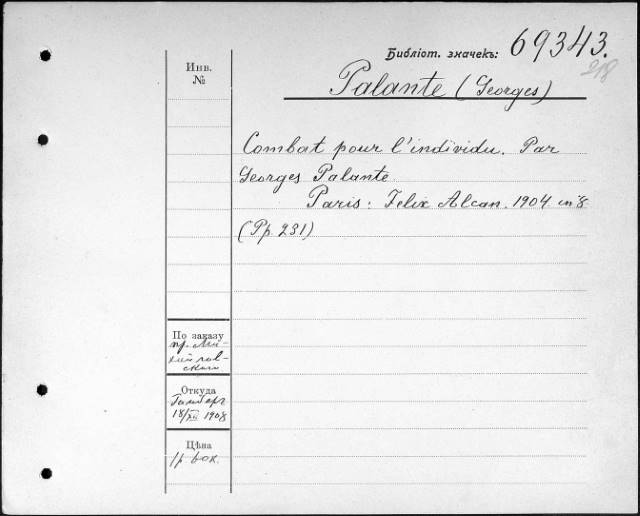 Библіот. значекъ: 69343.
218
Инв.
№
Palante (Georges)
Combat pour l'individu. Par
Georges Palante
Paris: Felix Alcan. 1904 in 8
(Pp. 231)
По заказу
пр. Ми-
хайлов-
скаго
Откуда
18/XII 1908
Цѣна
1 р. 60 к.